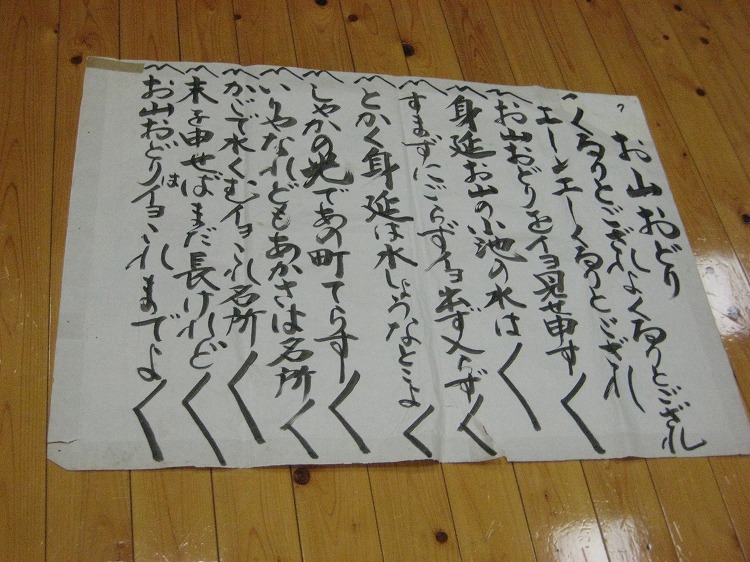 お山おどり
くるりとござれしょくるりとござれ
くるりとござれ
エーンエーくるりとござれ
〽お山おどりをイヨ見せ申す〱
〽身延お山の小池の水は〱
すまずにごらずイヨ出ず入らず〱
〽とかく身延は水しょうなとこよ〱
〽しゃかの光であの町てらす〱
〽いりやなれどもあかさは名所〱
〽かごで水くむイヨこれ名所〱
〽末を申せばまだ長けれど〱
〽お山おどりはイヨこれまでよ〱